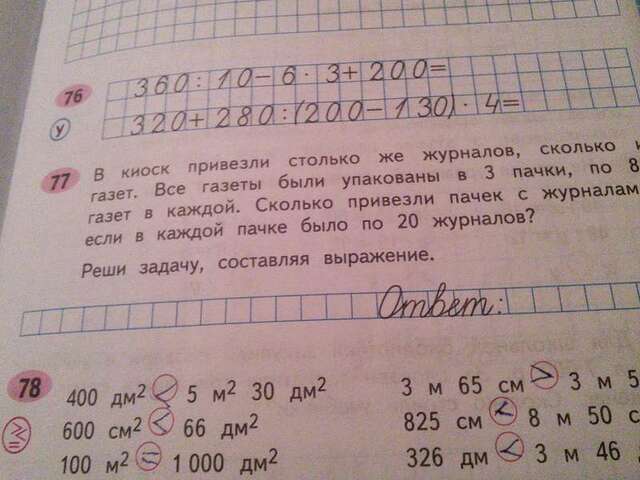 76 360 : 10 – 6 · 3 + 200 =
у 320 + 280 : (200 – 130) · 4 =
77 В киоск привезли столько же журналов, сколько и
газет. Все газеты были упакованы в 3 пачки, по 8
газет в каждой. Сколько привезли пачек с журналам
если в каждой пачке было по 20 журналов?
Реши задачу, составляя выражение.
Ответ:
78 400 дм² < 5 м² 30 дм² 3 м 65 см > 3 м 5
600 см² < 66 дм² 825 см < 8 м 50 с
100 м² = 1 000 дм² 326 дм < 3 м 46